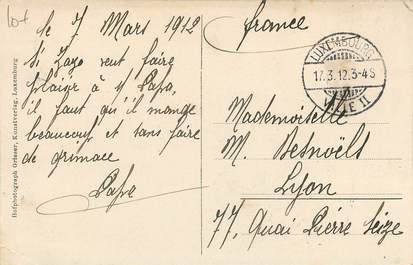 lot
le 7 Mars 1912
si Zazo veut faire
plaisir à M Papo,
il faut qu'il mange
beaucoup et sans faire
de grimace
Papo
Hofphotograph Grieser, Kunstverlag, Luxemburg
france
LUXEMBOURG
17.3.12.3-4S
VILLE II
Mademoiselle
M. Besnoëls
Lyon
77, Quai Pierre Seize